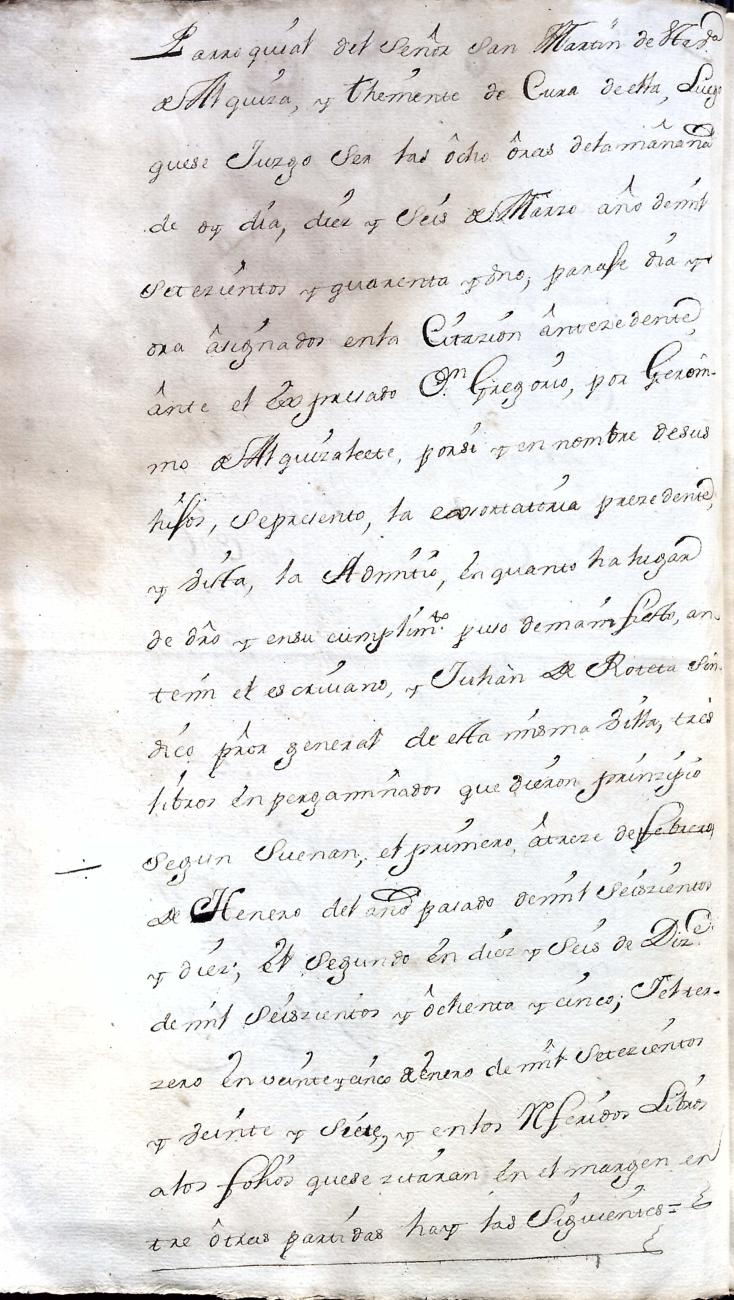 Parroquial del Señor San Martin de
de Alquiza, y themiente de Cura de ella, Luego
quese Juzgo ser las ôcho ôras dela mañana
de oy dia, diez y Seis de Marzo año demil
setezientos y quarenta y vno, para este dia y
ora âsignados enla Citazion ântezedente
ânte el Expresado Dn. Gregorio, por Geroni-
mo de Alquizaleete, porsi y en nombre desus
hijos, sepresento, la exsortatoria prezedente,
y vista, la Admitio, en quanto ha lugar
de dro y ensu cumplimto. puso demanifiesto, an
temi el escrivano, y Julian de Roteta Sin-
dico pror general de esta misma Villa, tres
libros Enpergaminados que dieron prinzipio
segun Suenan, el primero, âtreze de febrero
de Henero del año pasado demil Seiszientos
y diez; El Segundo en diez y Seis de Dize.
demil Seiszientos y ôchenta y cinco; Yelter-
zero En veinteycinco de Enero de mil Setezientos
y veinte y Siete, y enlos Rferidos Libros
alos folios quese zitaran En el margen en
tre ôtras partidas hay las Siguientes =